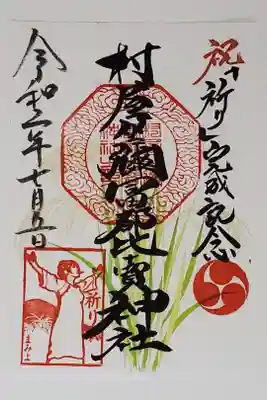 祝「祈り」完成記念
村屋坐彌冨都比賣神社
令和二年七月五日
祈り
まみよ